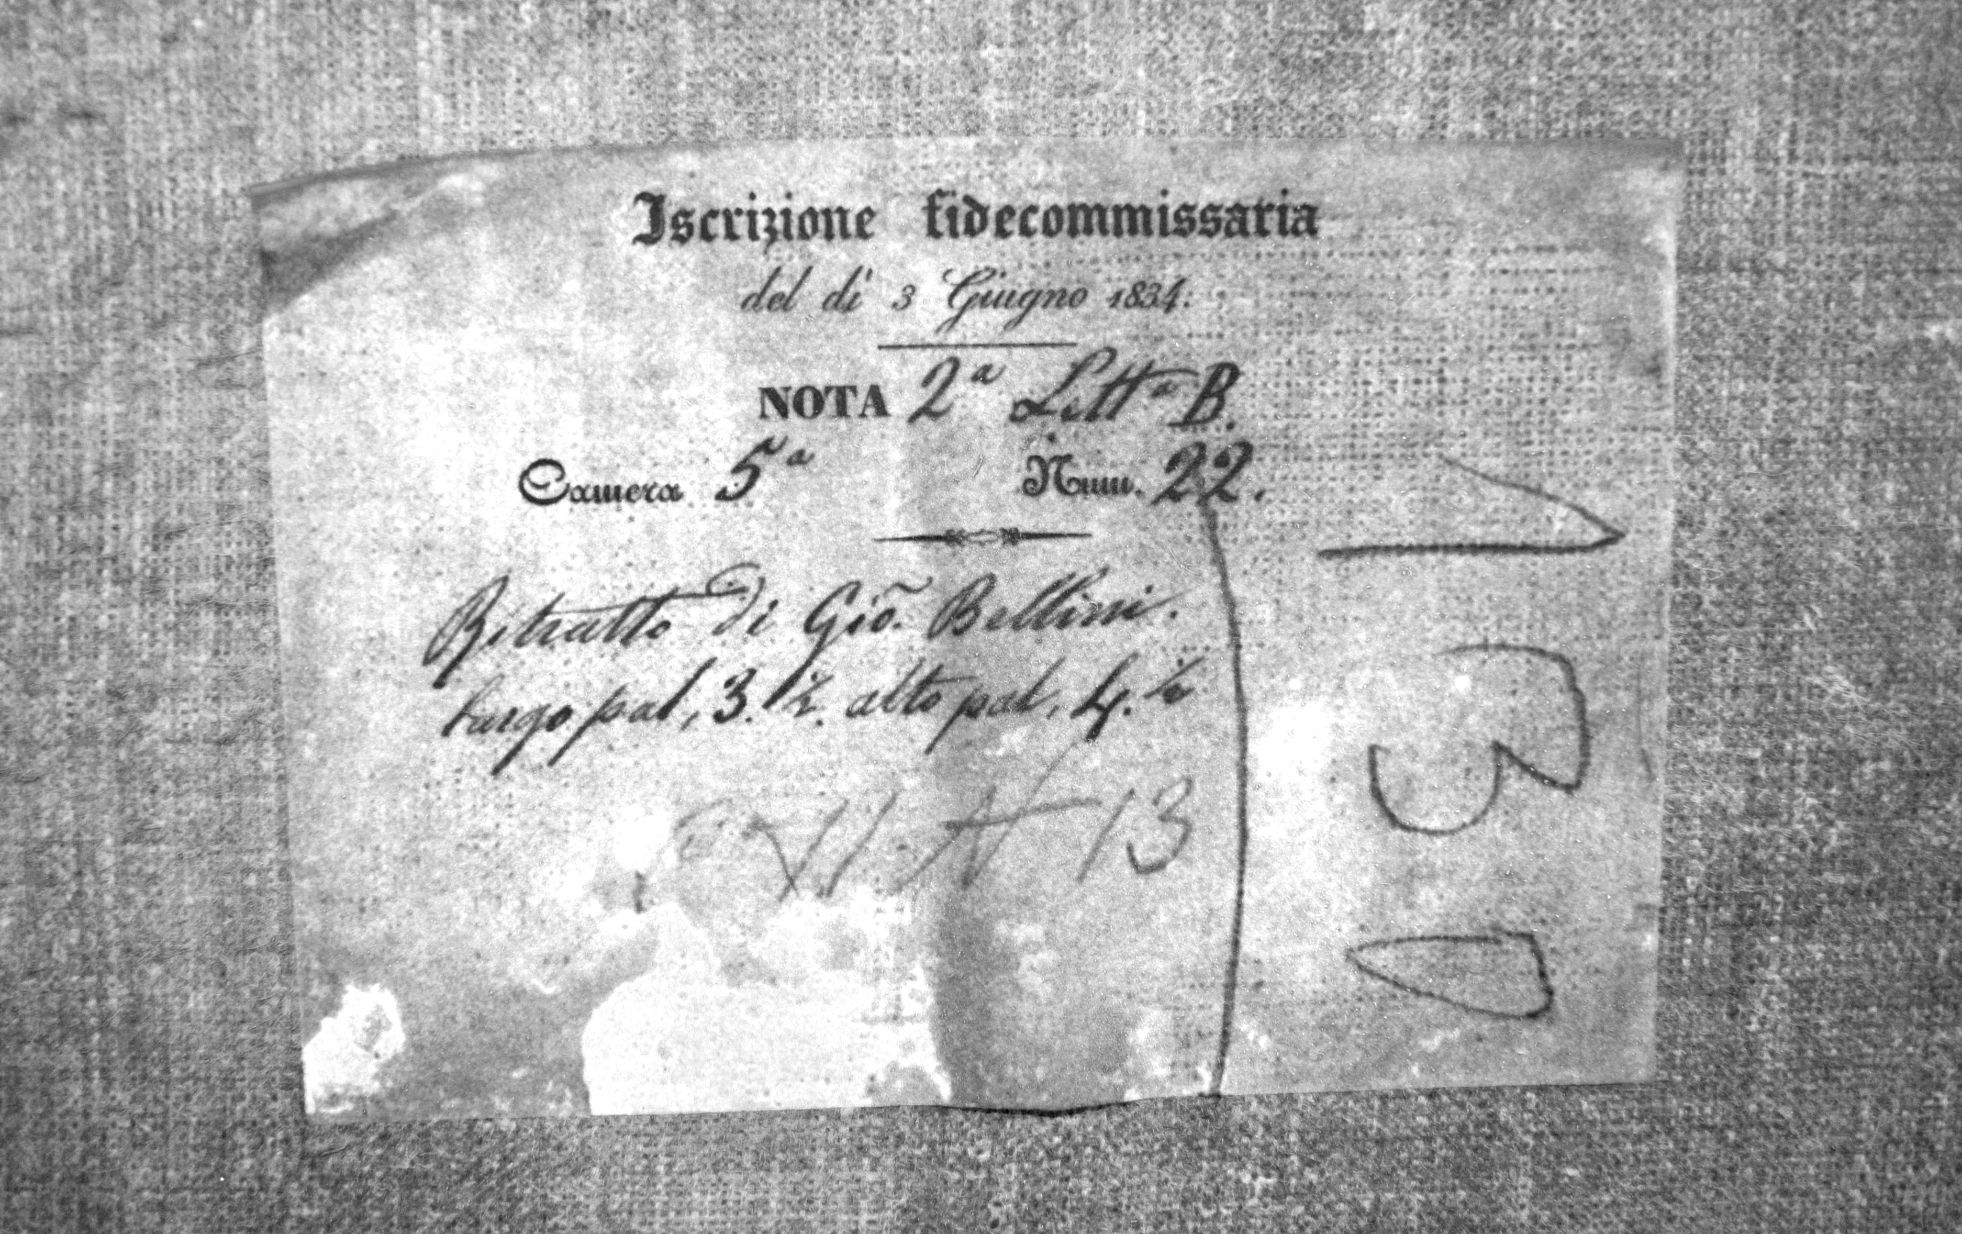 Iscrizione fidecommissaria
del dì 3 Giugno 1834.
NOTA 2ª Lettª B.
Camera 5ª Num. 22.
Ritratto di Gio. Bellini.
largo pal, 3. ½. alto pal, 4. ½
13
130